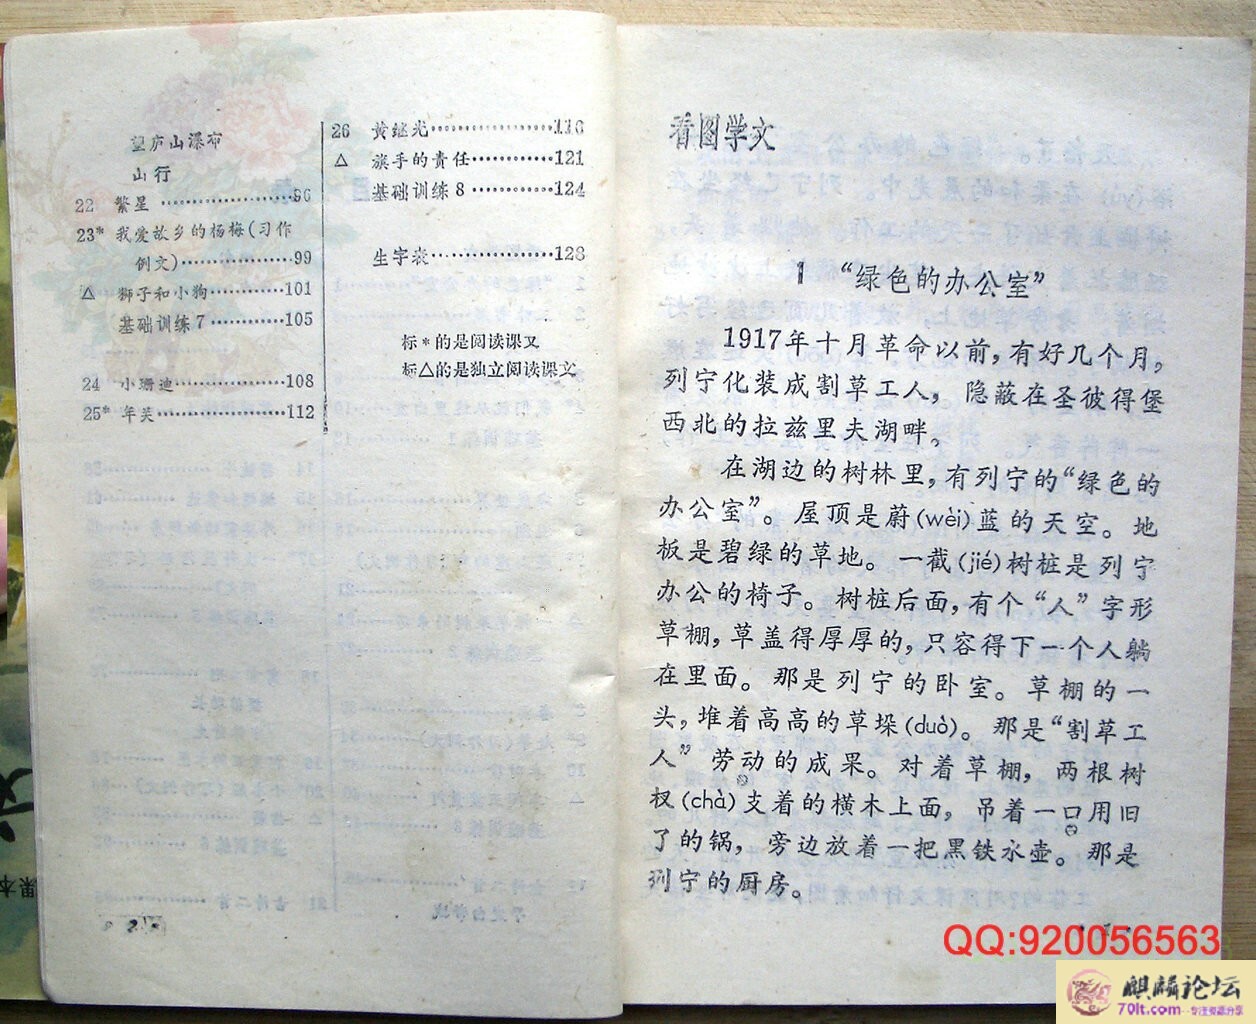 望庐山瀑布
山行
22 繁星 ………………96
23* 我爱故乡的杨梅(习作
例文)……………99
△ 狮子和小狗…………101
基础训练7…………105
24 小珊迪……………108
25* 年关………………112
26 黄继光………………116
△ 旗手的责任…………121
基础训练8…………124
生字表………………128
标*的是阅读课文
标△的是独立阅读课文
• 2 •
看图学文
1 “绿色的办公室”
1917年十月革命以前,有好几个月,
列宁化装成割草工人, 隐蔽在圣彼得堡
西北的拉兹里夫湖畔。
在湖边的树林里,有列宁的“绿色的
办公室”。屋顶是蔚(wèi)蓝的天空。地
板是碧绿的草地。一截(jié)树桩是列宁
办公的椅子。树桩后面,有个“人”字形
草棚,草盖得厚厚的,只容得下一个人躺
在里面。那是列宁的卧室。草棚的一
头,堆着高高的草垛(duò)。那是“割草工
人”劳动的成果。对着草棚, 两根树
杈(chà)支着的横木上面, 吊着一口用旧
了的锅, 旁边放着一把黑铁水壶。那是
列宁的厨房。
• 1 •
QQ:920056563
麒麟论坛
70lt.com--专注资源分享
课本